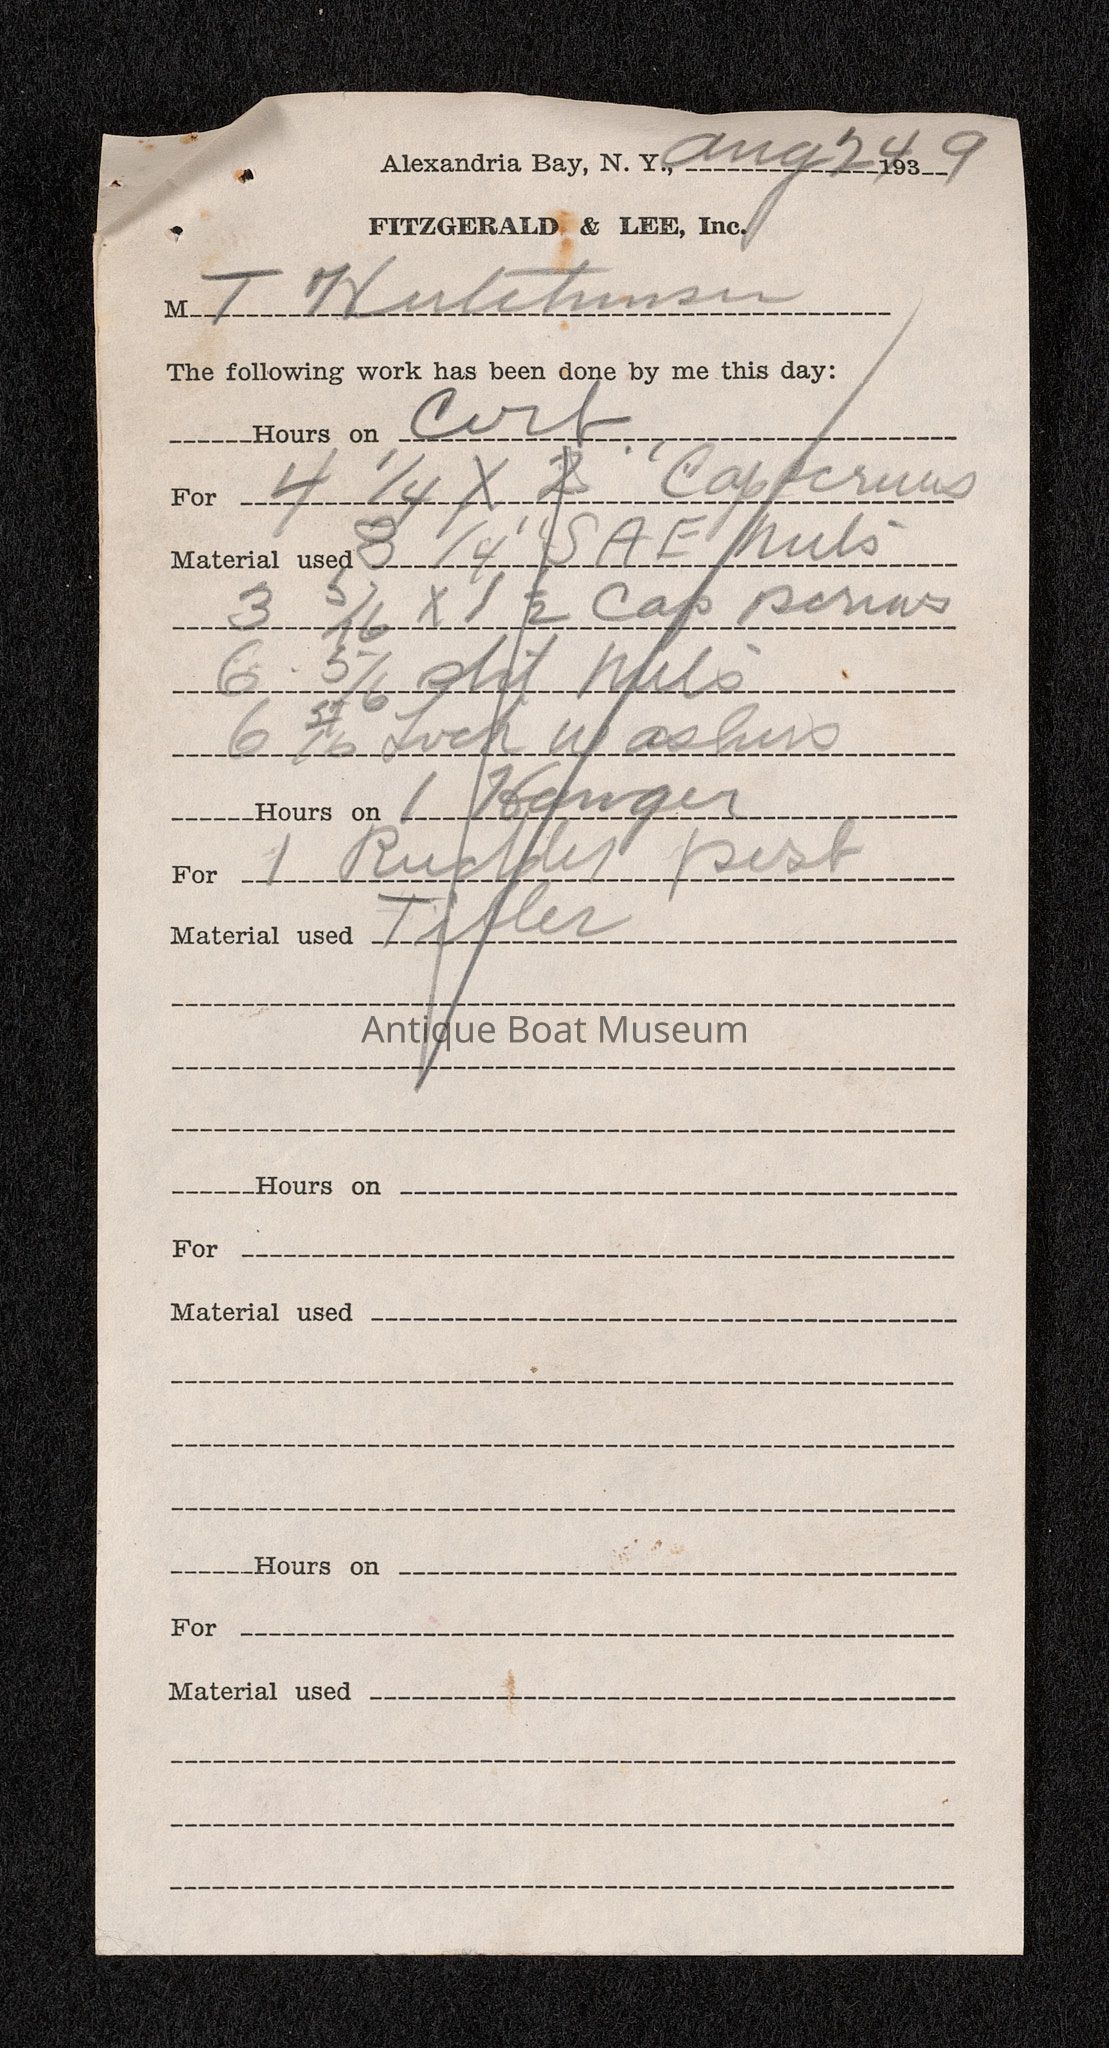 Alexandria Bay, N. Y., Aug 24 1939
FITZGERALD & LEE, Inc.
M T Hutchinson
The following work has been done by me this day:
Hours on
For 4 1/4 X 2" Cap screws
Material used 8 1/4" SAE Nuts
3 5/16 X 1 1/2 Cap screws
6 5/16 slit Nuts
6 5/16 Lock washers
Hours on 1 Hanger
For 1 Rudder post
Material used Tiller
Antique Boat Museum
Hours on
For
Material used
Hours on
For
Material used